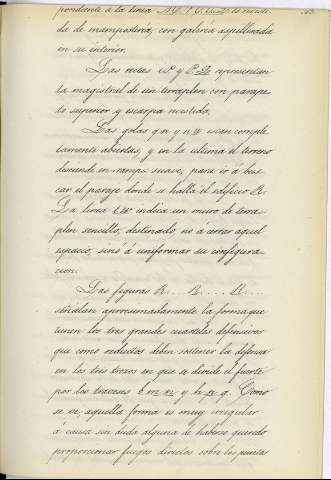 pondiente á la linea
da de mampostería, con galería aspillerada
en su interior.
Las rectas y representan
la magistral de un terraplen con parape-
to superior y escarpa revestida.
Las golas q n y n están comple-
tamente abiertas, y en la ultima el terreno
desciende en rampa suave, para ir á bus-
car el paraje donde se halla el edificio R.
La linea indica un muro de terra-
plen sencillo, destinado, no a cerrar aquel
espacio, sinó á uniformar su configura-
cion.
Las figuras R... R.... R....
señalan aproximadamente la forma que
tienen los tres grandes cuarteles defensivos
que como reductos deben sostener la defensa
en los tres trozos en que se divide el fuerte
por los traveses l m n y h n q. Como
se ve, aquella forma es muy irregular
á causa sin duda alguna de haberse querido
proporcionar fuegos directos sobre los puntos